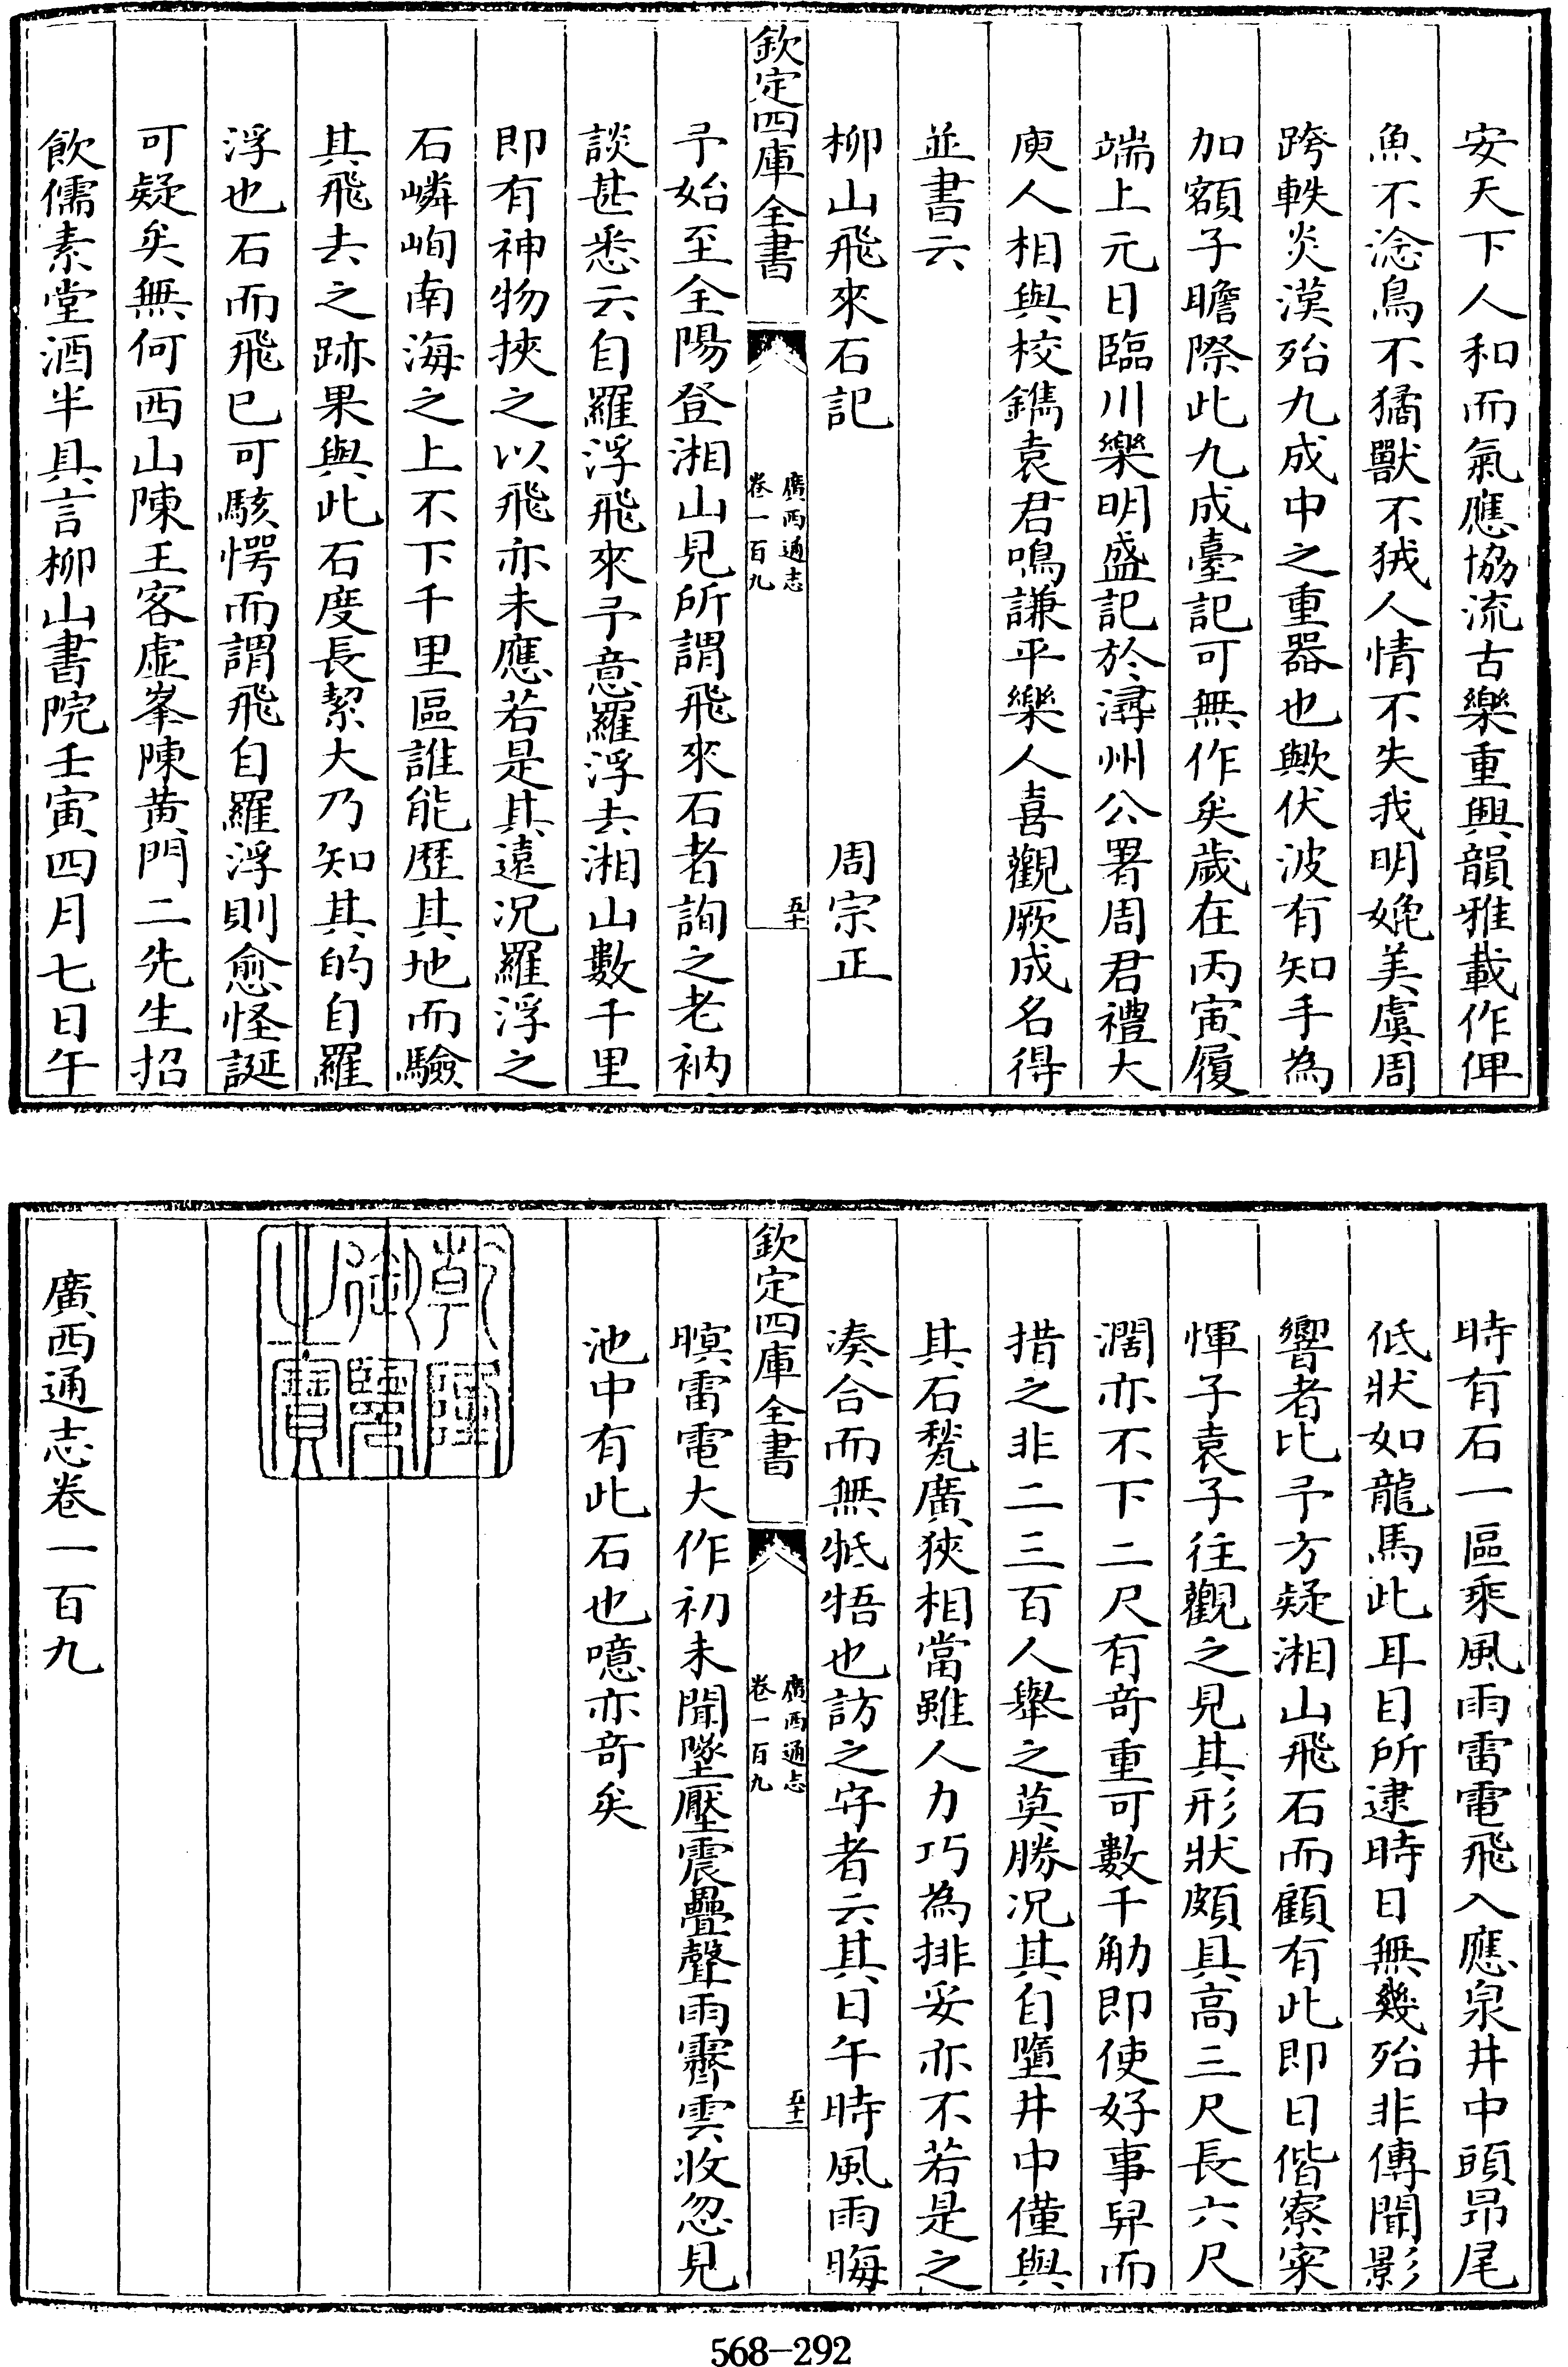 安天下人和而氣應協流古樂重興韻雅載作俾
魚不淰鳥不獝獸不狘人情不失我明媲美虞周
跨軼炎漢殆九成中之重器也歟伏波有知手為
加額子瞻際此九成臺記可無作矣歲在丙寅履
端上元日臨川樂明盛記於潯州公署周君禮大
庾人相與校鐫袁君鳴謙平樂人喜觀厥成名得
並書云
柳山飛來石記　周宗正
欽定四庫全書
廣西通志
卷一百九
五十
予始至全陽登湘山見所謂飛來石者詢之老衲
談甚悉云自羅浮飛來予意羅浮去湘山數千里
即有神物挾之以飛亦未應若是其遠况羅浮之
石嶙峋南海之上不下千里區誰能歷其地而驗
其飛去之跡果與此石度長絜大乃知其的自羅
浮也石而飛已可駭愕而謂飛自羅浮則愈怪誕
可疑矣無何西山陳王客虛峯陳黄門二先生招
飲儒素堂酒半具言柳山書院壬寅四月七日午
時有石一區乘風雨雷電飛入應泉井中頭昂尾
低狀如龍馬此耳目所逮時日無幾殆非傳聞影
響者比予方疑湘山飛石而顧有此即日偕寮寀
惲子袁子往觀之見其形狀頗具高三尺長六尺
濶亦不下二尺有竒重可數千觔即使好事舁而
措之非二三百人舉之莫勝况其自墮井中僅與
其石甃廣狹相當雖人力巧為排妥亦不若是之
凑合而無牴牾也訪之守者云其日午時風雨晦
欽定四庫全書
廣西通志
卷一百九
五十一
暝雷電大作初未聞墜壓震疊聲雨霽雲收忽見
池中有此石也噫亦竒矣
乾隆御覽之寶
廣西通志卷一百九
568-292